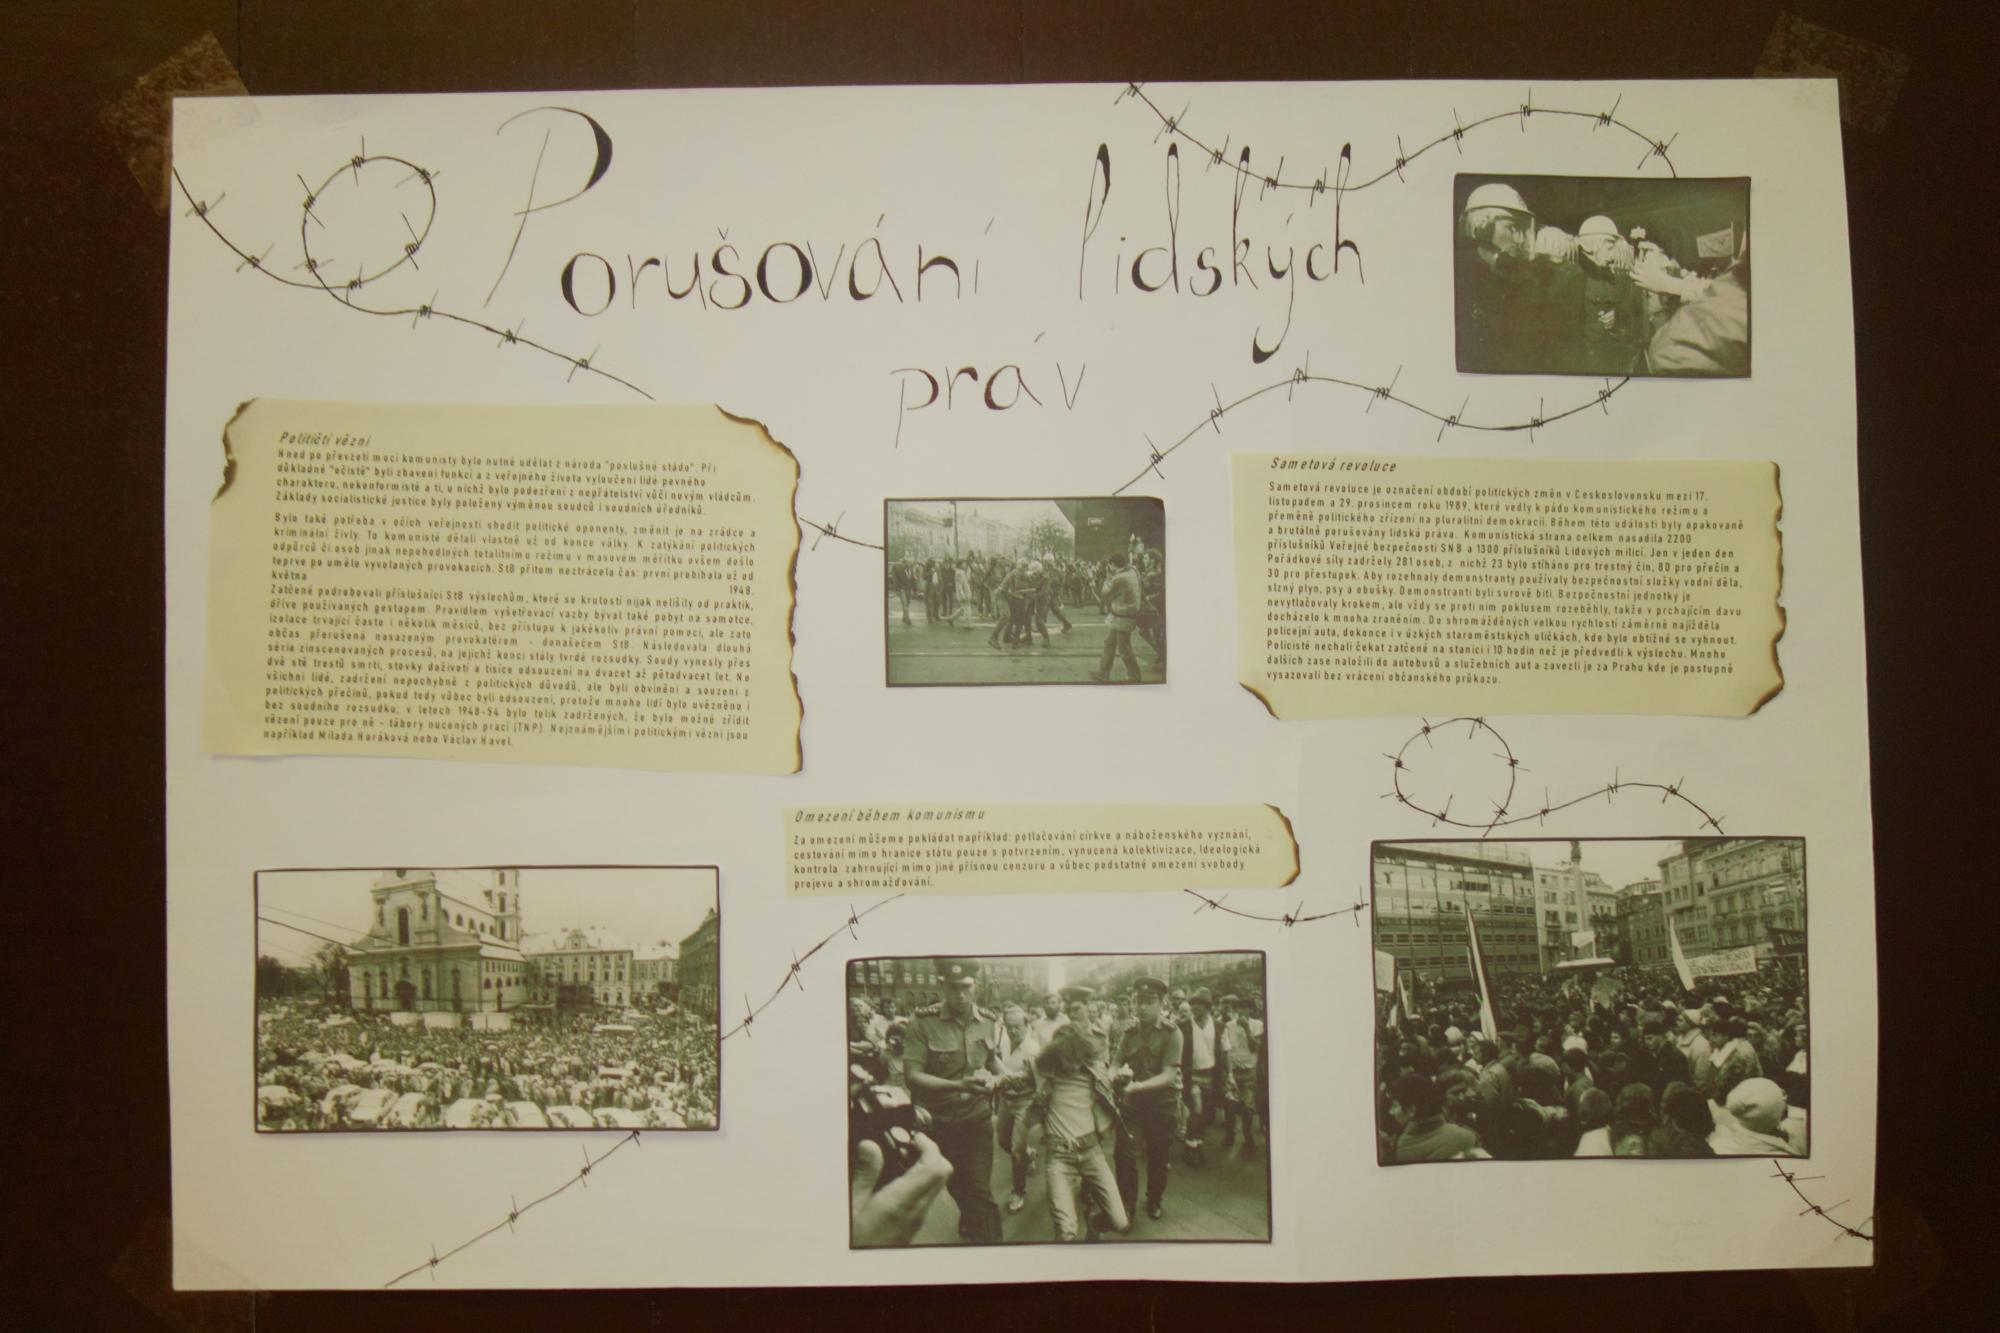 Porušování lidských
práv
Političtí vězni
Hned po převzetí moci komunisty bylo nutné udělat z národa "poslušné stádo". Při
důkladné "očistě" byli zbaveni funkcí a z veřejného života vyloučeni lidé pevného
charakteru, nekonformisté a ti, u nichž bylo podezření z nepřátelství vůči novým vládcům.
Základy socialistické justice byly položeny výměnou soudců i soudních úředníků.
Bylo také potřeba v očích veřejnosti shodit politické oponenty, změnit je na zrádce a
kriminální živly. To komunisté dělali vlastně už od konce války. K zatýkání politických
odpůrců či osob jinak nepohodlných totalitnímu režimu v masovém měřítku ovšem došlo
teprve po uměle vyvolaných provokacích. StB přitom neztrácela čas: první probíhala už od
května 1948.
Zatčené podrobovali příslušníci StB výslechům, které se krutostí nijak nelišily od praktik,
dříve používaných gestapem. Pravidlem vyšetřovací vazby býval také pobyt na samotce,
izolace trvající často i několik měsíců, bez přístupu k jakékoliv právní pomoci, ale zato
občas přerušená nasazeným provokatérem - donašečem StB. Následovala dlouhá
série zinscenovaných procesů, na jejichž konci stály tvrdé rozsudky. Soudy vynesly přes
dvě stě trestů smrti, stovky doživotí a tisíce odsouzení na dvacet až pětadvacet let. Ne
všichni lidé, zadržení nepochybně z politických důvodů, ale byli obviněni a souzeni z
politických přečinů, pokud tedy vůbec byli odsouzeni, protože mnoho lidí bylo uvězněno i
bez soudního rozsudku; v letech 1948-54 bylo tolik zadržených, že bylo možné zřídit
vězení pouze pro ně - tábory nucených prací (TNP). Nejznámějšími politickými vězni jsou
například Milada Horáková nebo Václav Havel.
Sametová revoluce
Sametová revoluce je označení období politických změn v Československu mezi 17.
listopadem a 29. prosincem roku 1989, které vedly k pádu komunistického režimu a
přeměně politického zřízení na pluralitní demokracii. Během této události byly opakovaně
a brutálně porušovány lidská práva. Komunistická strana celkem nasadila 2200
příslušníků Veřejné bezpečnosti SNB a 1300 příslušníků Lidových milicí. Jen v jeden den
Pořádkové síly zadržely 281 osob, z nichž 23 bylo stíháno pro trestný čin, 80 pro přečin a
30 pro přestupek. Aby rozehnaly demonstranty používaly bezpečnostní složky vodní děla,
slzný plyn, psy a obušky. Demonstranti byli surově biti. Bezpečnostní jednotky je
nevytlačovaly krokem, ale vždy se proti nim poklusem rozeběhly, takže v prchajícím davu
docházelo k mnoha zraněním. Do shromážděných velkou rychlostí záměrně najížděla
policejní auta, dokonce i v úzkých staroměstských uličkách, kde bylo obtížné se vyhnout.
Policisté nechali čekat zatčené na stanici i 10 hodin než je předvedli k výslechu. Mnoho
dalších zase naložili do autobusů a služebních aut a zavezli je za Prahu kde je postupně
vysazovali bez vrácení občanského průkazu.
Omezení během komunismu
Za omezení můžeme pokládat například: potlačování církve a náboženského vyznání,
cestování mimo hranice státu pouze s potvrzením, vynucená kolektivizace, Ideologická
kontrola zahrnující mimo jiné přísnou cenzuru a vůbec podstatné omezení svobody
projevu a shromažďování.